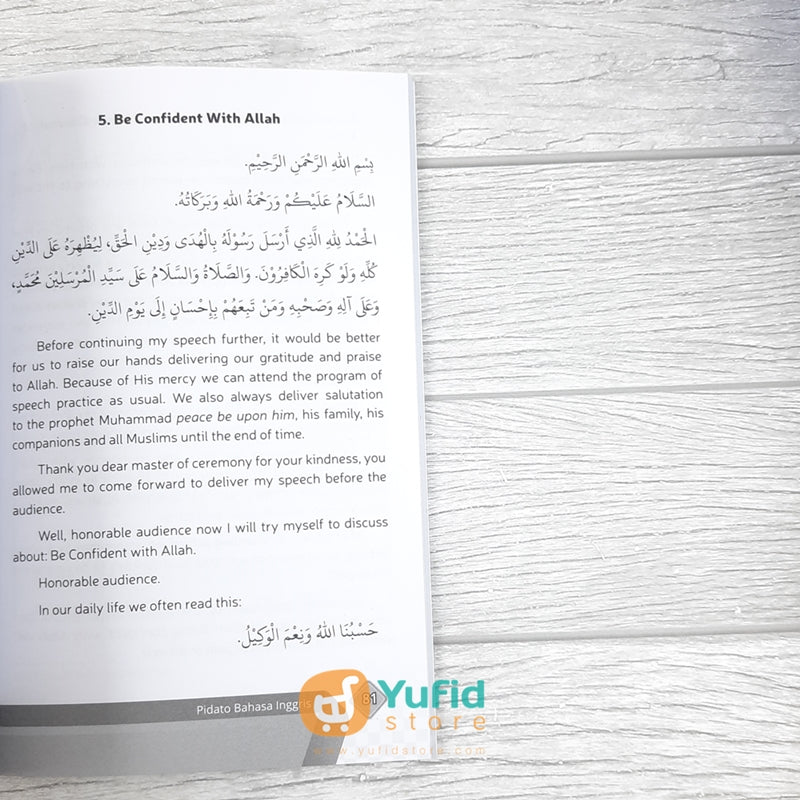 5. Be Confident With Allah
بِسْمِ اللهِ الرَّحْمَنِ الرَّحِيْمِ.
السَّلَامُ عَلَيْكُمْ وَرَحْمَةُ اللهِ وَبَرَكَاتُهُ.
الْحَمْدُ لِلهِ الَّذِي أَرْسَلَ رَسُوْلَهُ بِالْهُدَى وَدِيْنِ الْحَقِّ، لِيُظْهِرَهُ عَلَى الدِّيْنِ
كُلِّهِ وَلَوْ كَرِهَ الْكَافِرُوْنَ. وَالصَّلَاةُ وَالسَّلَامُ عَلَى سَيِّدِ الْمُرْسَلِيْنَ مُحَمَّدٍ،
وَعَلَى آلِهِ وَصَحْبِهِ وَمَنْ تَبِعَهُمْ بِإِحْسَانٍ إِلَى يَوْمِ الدِّيْنِ.
Before continuing my speech further, it would be better
for us to raise our hands delivering our gratitude and praise
to Allah. Because of His mercy we can attend the program of
speech practice as usual. We also always deliver salutation
to the prophet Muhammad peace be upon him, his family, his
companions and all Muslims until the end of time.
Thank you dear master of ceremony for your kindness, you
allowed me to come forward to deliver my speech before the
audience.
Well, honorable audience now I will try myself to discuss
about: Be Confident with Allah.
Honorable audience.
In our daily life we often read this:
حَسْبُنَا اللهُ وَنِعْمَ الْوَكِيْلُ.
Pidato Bahasa Inggris 81
Yufid
store
www.yufidstore.com